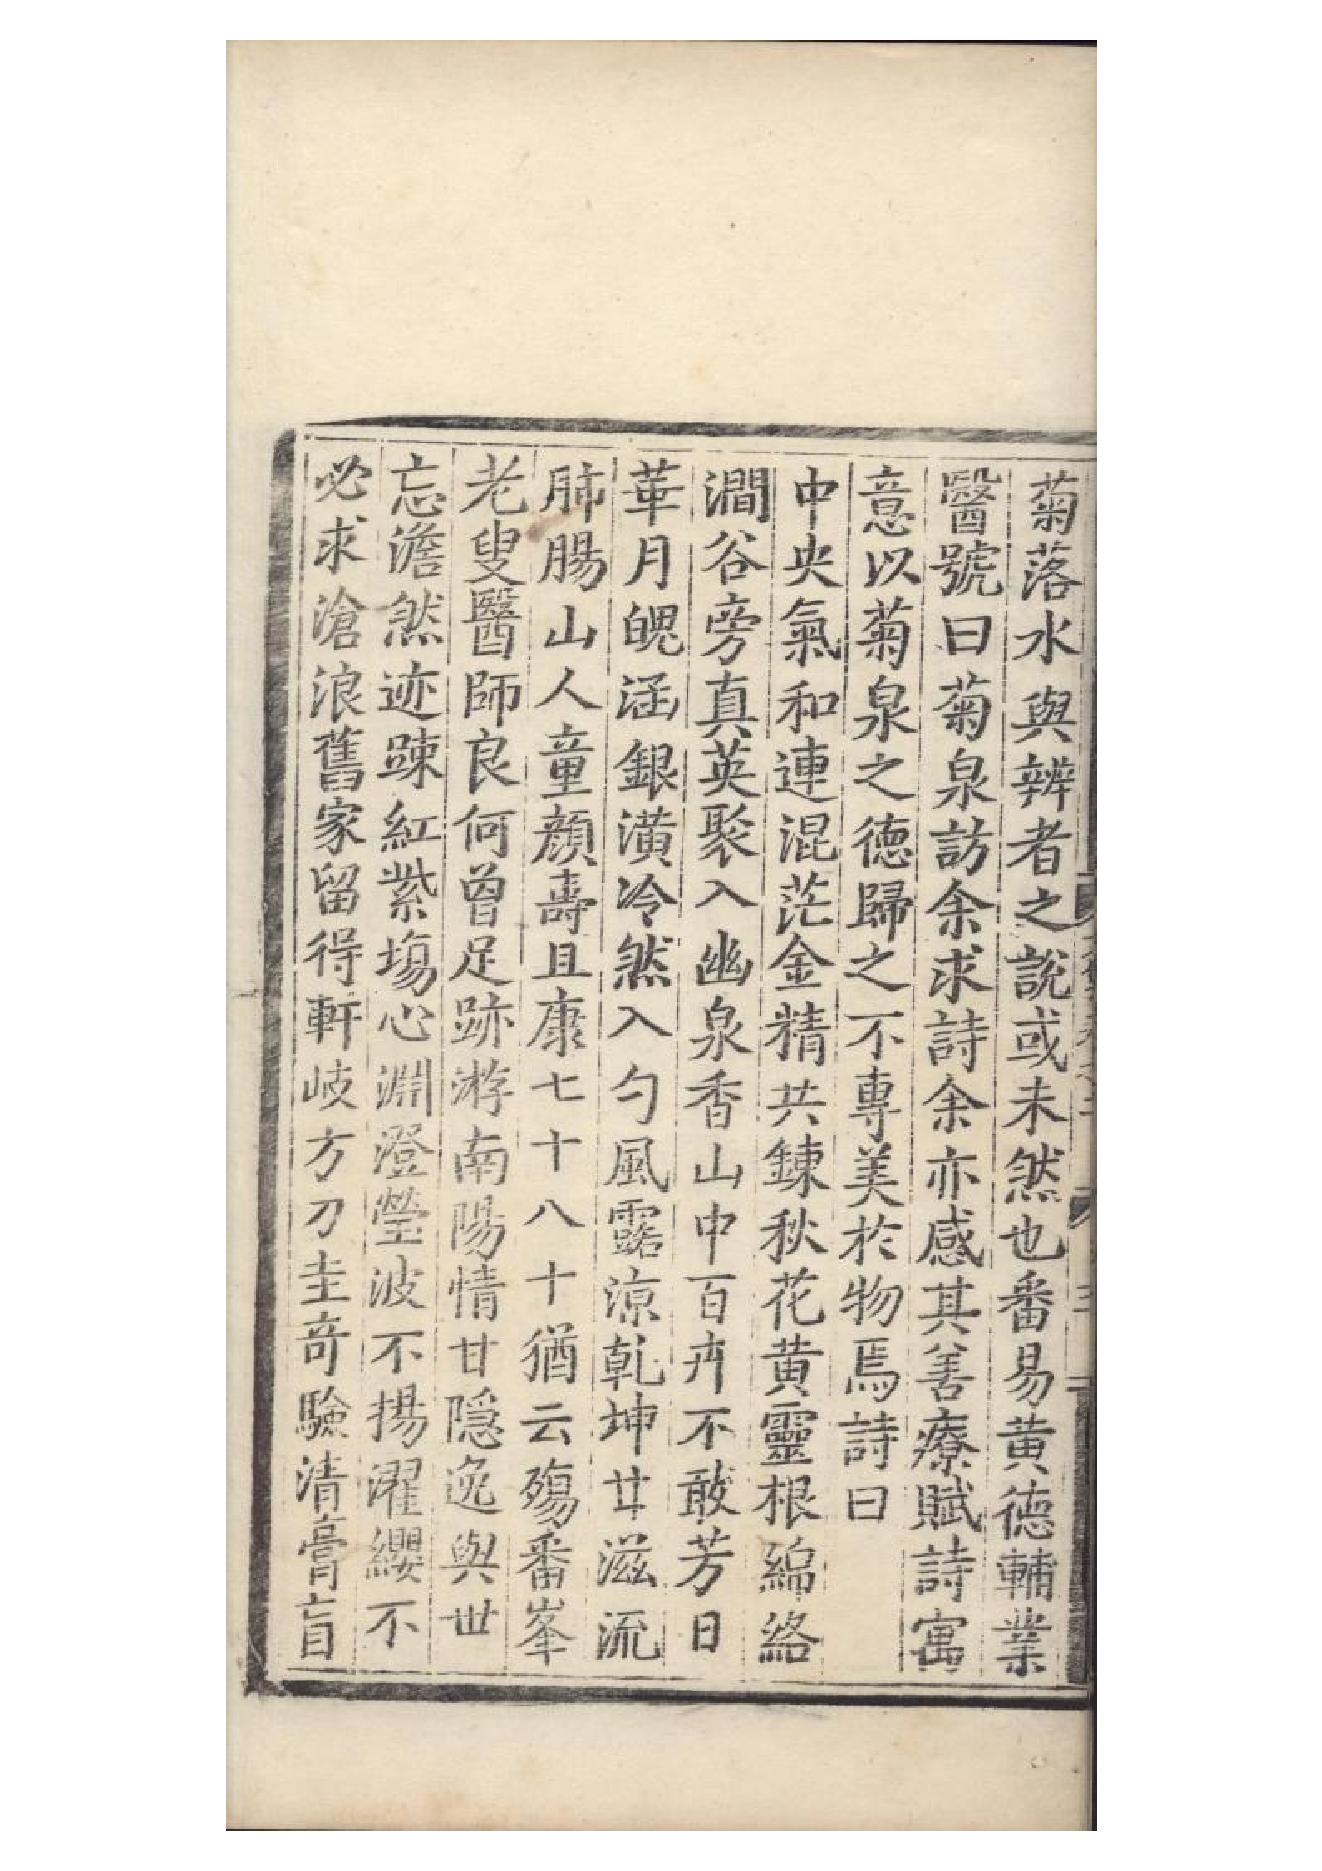 菊落水與辨者之說或未然也番昜黄德輔業
醫號曰菊泉訪余求詩余亦感其善療賦詩寓
意以菊泉之德歸之不專美於物焉詩曰
中央氣和連混茫金精共鍊秋花黄靈根綿絡
澗谷旁真英聚入幽泉香山中百卉不敢芳日
華月魄涵銀潢冷然入勺風露涼乾坤廿滋流
肺腸山人童顔壽且康七十八十猶云殤番峯
老叟醫師良何曾足跡游南陽情甘隱逸與世
忘澹然迹踈紅紫塲心淵澄瑩波不揚濯纓不
必求滄浪舊家留得軒岐方刀圭竒驗清膏肓